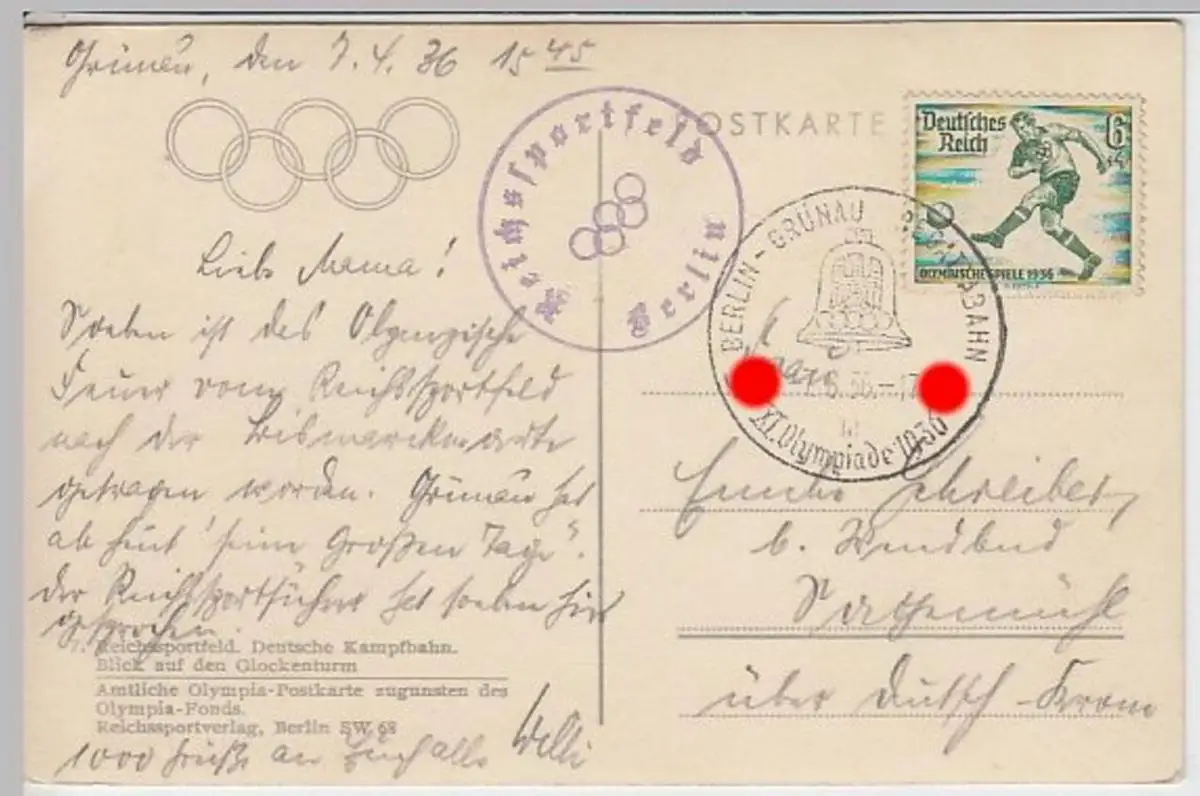 Grünau, den 7.4.36 15 45
Liebe Mama!
Soeben ist das Olympische
Feuer vom Reichssportfeld
nach der Bismarckwarte
getragen worden. Grünau hat
ab heut "seine Großen Tage".
Der Reichssportführer hat soeben hier
gesprochen.
7. Reichssportfeld. Deutsche Kampfbahn.
Blick auf den Glockenturm
Amtliche Olympia-Postkarte zugunsten des
Olympia-Fonds.
Reichssportverlag, Berlin SW 68
1000 Grüße an Euch alle Willi
Reichssportfeld
Berlin
POSTKARTE
Deutsches
Reich
6
+4
OLYMPISCHE SPIELE 1936
BERLIN-GRÜNAU
XI. Olympiade 1936
Frau
Schreiber,
b. Wendland
Sagemühl
über Deutsch-Krone